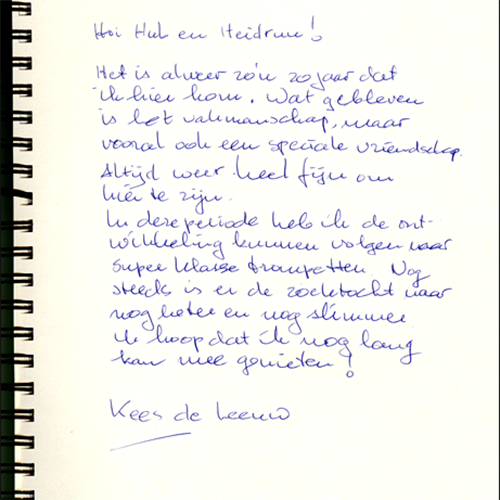 Hoi Hub en Heidrun!
Het is alweer zo'n 20 jaar dat
ik hier kom. Wat gebleven
is het vakmanschap, maar
vooral ook een speciale vriendschap.
Altijd weer heel fijn om
hier te zijn.
In deze periode heb ik de ont-
wikkeling kunnen volgen naar
super klasse trompetten. Nog
steeds is er de zoektocht naar
nog beter en nog slimmer
Ik hoop dat ik nog lang
kan mee genieten!
Kees de Leeuw